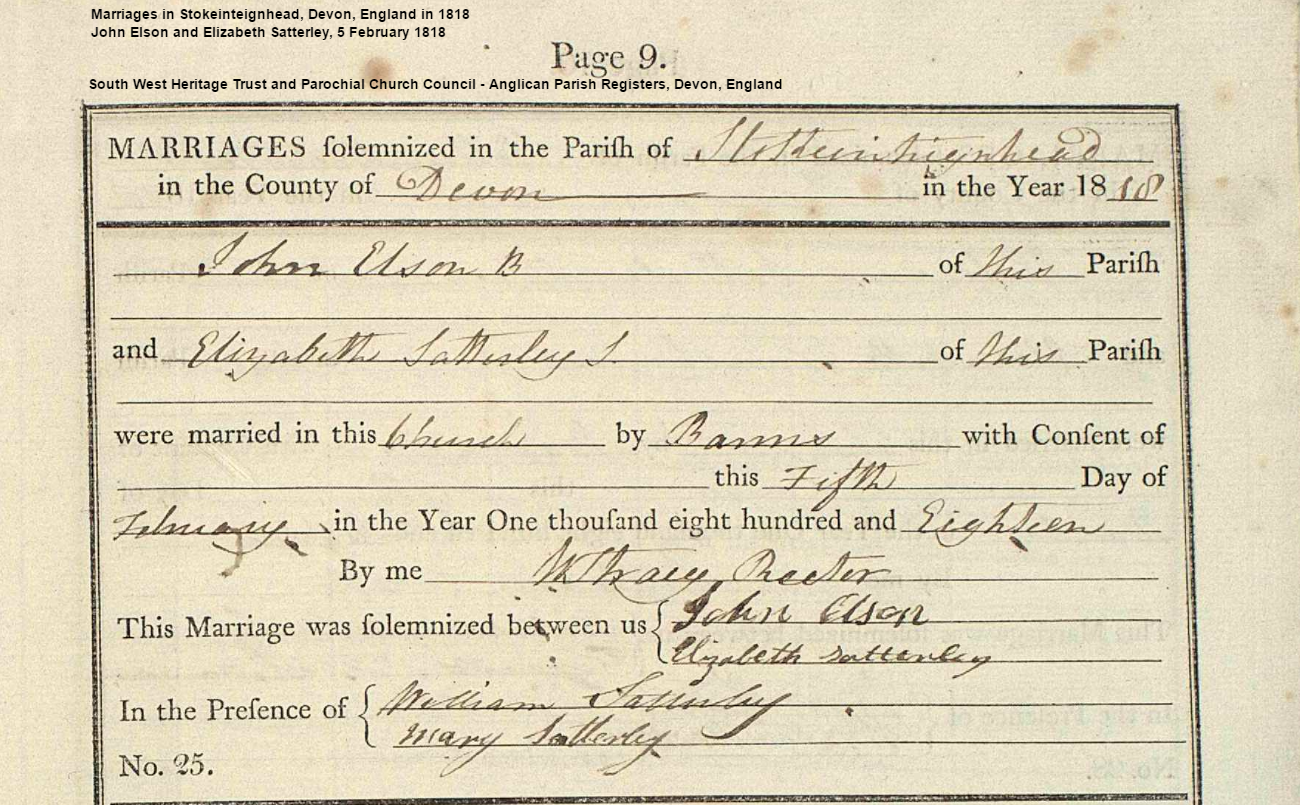 Marriages in Stokeinteignhead, Devon, England in 1818
John Elson and Elizabeth Satterley, 5 February 1818
Page 9.
South West Heritage Trust and Parochial Church Council - Anglican Parish Registers, Devon, England
MARRIAGES ſolemnized in the Pariſh of Stokeinteignhead
in the County of Devon in the Year 18 18
John Elson B of this Pariſh
and Elizabeth Satterley S of this Pariſh
were married in this Church by Banns with Conſent of
this Fifth Day of
February in the Year One thouſand eight hundred and Eighteen
By me Rector
This Marriage was ſolemnized between us John Elson
Elizabeth Satterley
In the Preſence of William Satterley
Mary Satterley
No. 25.